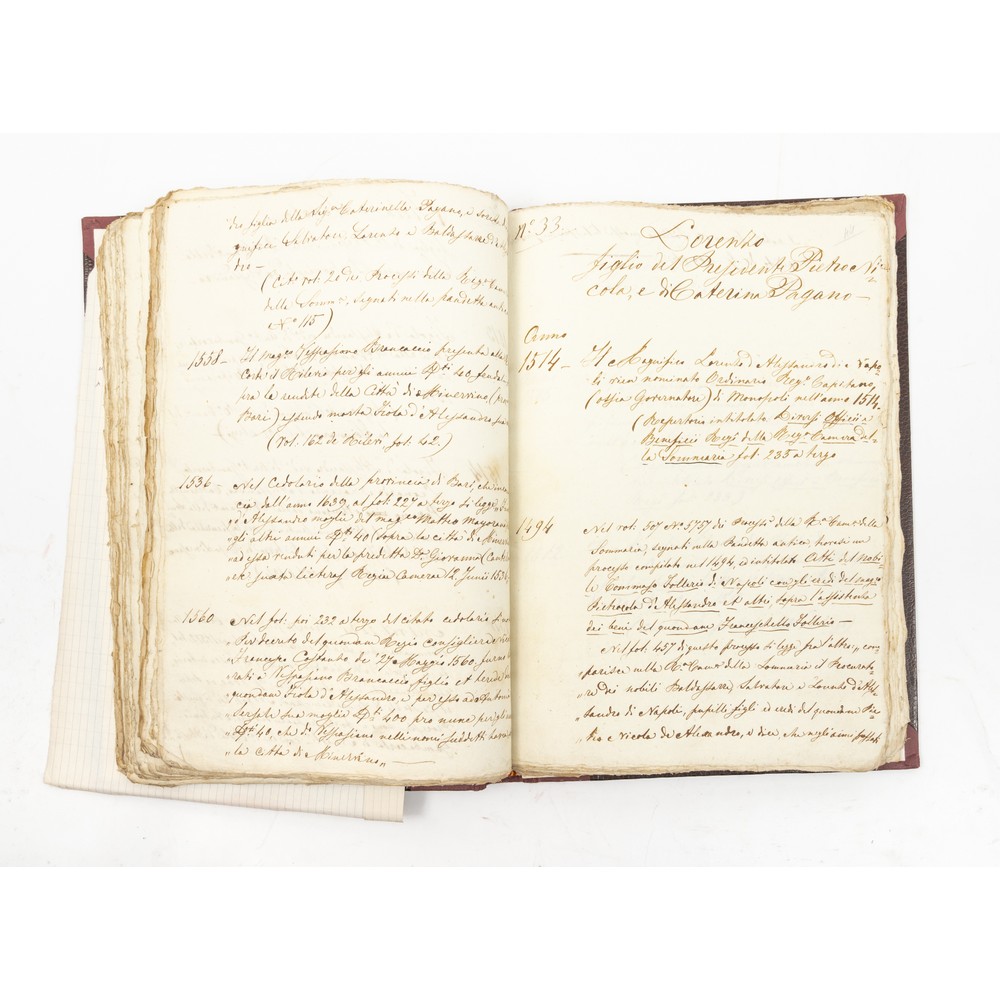 figlia della Sig.ra Caterinella Pagano, e
gnifici Salvatore, Lorenzo e Baldassarre
dro —
(Cit.o vol. 20 dei Processi della Reg.a Cam
della Somm.a segnati nella pandetta anti
N.o 115)
1558— Il mag.co Vespasiano Brancaccio presenta alla
Corte il Rilevio per gli annui D.ti 40
pra le rendite della Città di Minervino
Bari) essendo morta Fiola d'Alessandro
(Vol. 162 de' Rilevi fol. 42.)
1536— Nel Cedolario della provincia di Bari, che in
cia dall'anno 1639, al fol. 227 a tergo si legge
d'Alessandro moglie del mag.co Matteo
gli altri annui D.ti 40 (sopra la città di
ad essa venduti per lo predetto D. Giovanni
juxta licteras Regie Camere 12 Junii 153
1560 Nel fol. poi 232 a tergo del citato cedolario si
Per decreto del quondam Regio Consigliere
Francesco a' 27 Maggio 1560, furno
rati a Vespasiano Brancaccio figlio et herede
quondam Fiola d'Alessandro, e per esso ad Antonia
sua moglie D.ti 400 pro nunc per gli
„D.ti 40, che di Vespasiano nelli nomi suddetti
„la città di Minervino„ —
N.o 33.
Lorenzo
figlio del Presidente Pietro Ni=
cola, e di Caterina Pagano—
Anno
1514— Il Magnifico Lorenzo d'Alessandro di Napo=
li vien nominato Ordinario Reg.o Capitano,
(ossia Governatore) di Monopoli nell'anno 1514.
(Repertorio intitolato Diversi Officii e
Beneficii Regi della Reg.a Camera del=
la Sommaria fol. 235 a tergo
1494 Nel vol. 507 N.o 5757 dei Processi della R.a Cam.a della
Sommaria, segnati nella Pandetta antica, trovasi un
processo compilato nel 1494, ed intitolato Atti del Nobi=
le Tommaso Folliero di Napoli con gli eredi del mag.co
Pietrocola d'Alessandro et altri, sopra l'assistenza
dei beni del quondam Franceschello Folliero—
Nel fol. 457 di questo processo si legge fra l'altro: „com=
parisce nella R.a Cam.a della Sommaria il Procurato=
„re dei nobili Baldassarre, Salvatore e Lorenzo d'Ales
„sandro di Napoli, pupilli figli ed eredi del quondam Pie=
„tro e Nicola de Alexandro, e dice, che negli anni passati